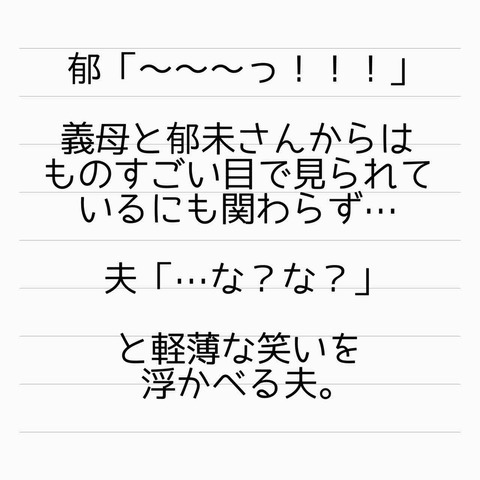 郁「〜〜〜っ！！！」
義母と郁未さんからは
ものすごい目で見られて
いるにも関わらず…
夫「…な？な？」
と軽薄な笑いを
浮かべる夫。